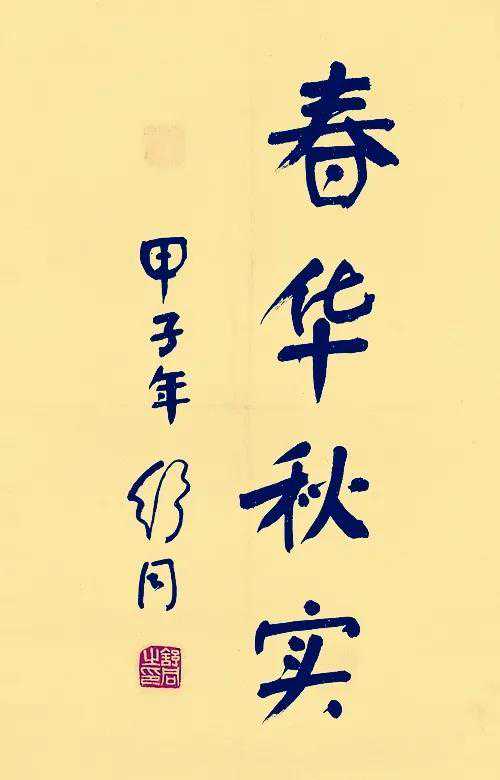 春华秋实
甲子年
舒同
舒同之印